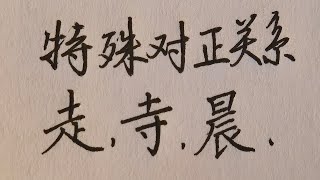 特殊对正关系
走,寺,晨.